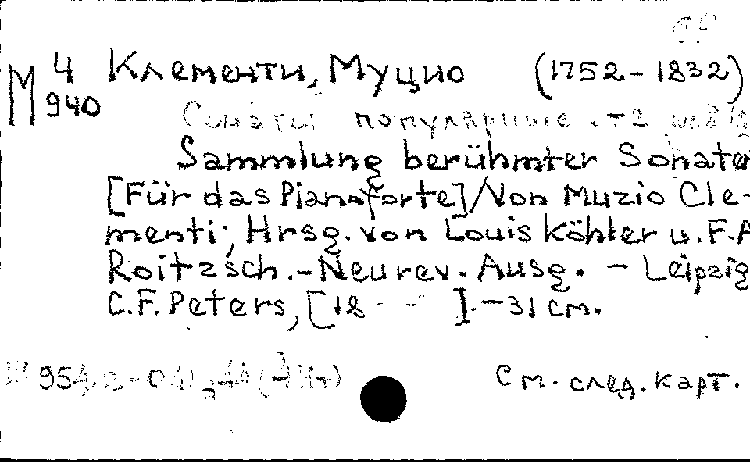 М 4 Клементи, Муцио (1752-1832)
940
Сонаты популярные
Sammlung berühmter Sonate
[Für das Pianoforte]/Von Muzio Cle-
menti; Hrsg. von Louis Köhler u. F.A
Roitzsch. - Neu rev. Ausg. - Leipzig
C.F. Peters, [18 - - ]. - 31 cm.
См. след. карт.